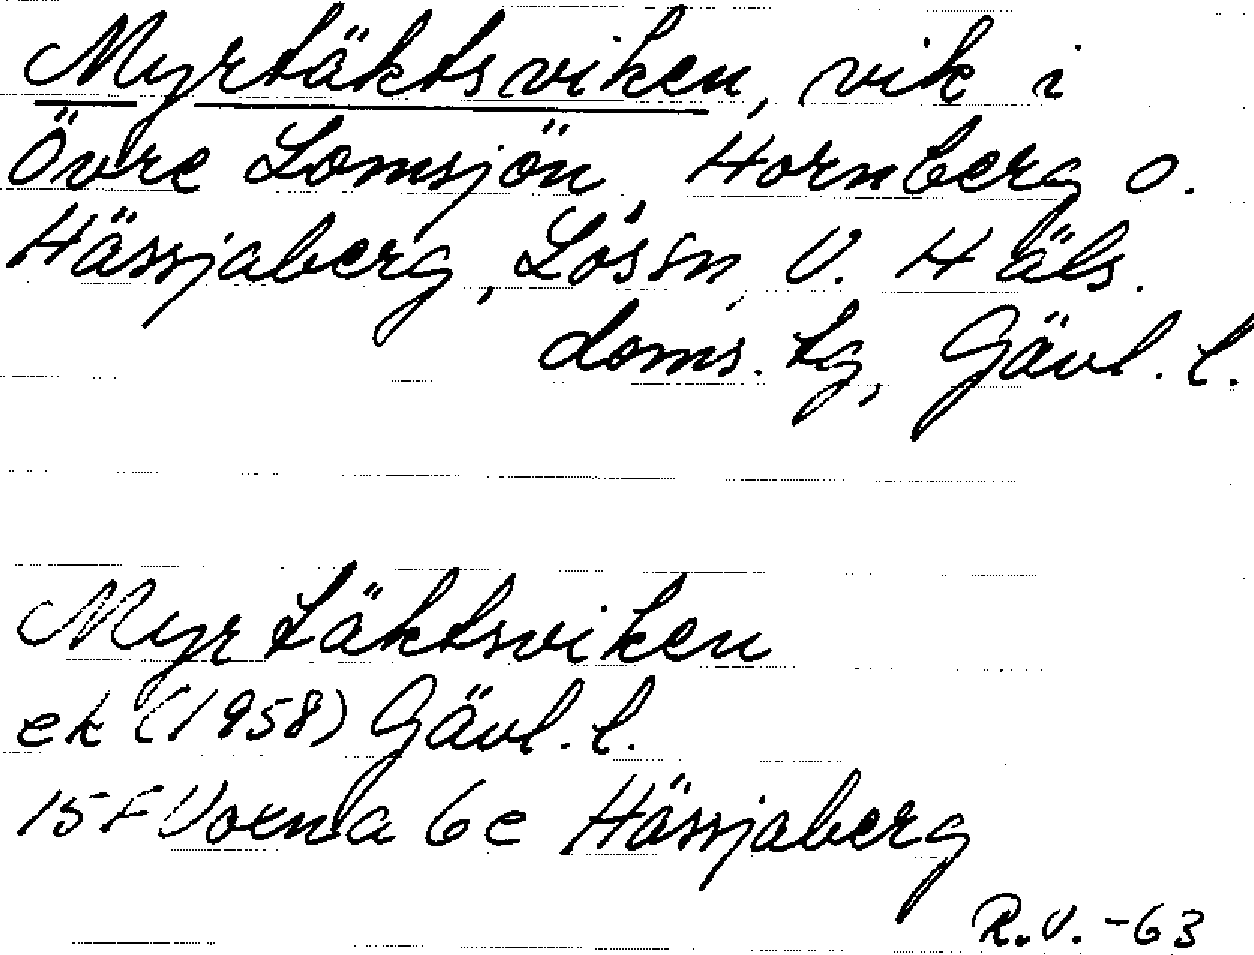 Myrtäktsviken, vik i
Övre Lomsjön, Hornberg o.
Hässjaberg, Lössn, V. Häls.
doms. lg, Gävl. l.
Myrtäktsviken
ek (1958) Gävl. l.
15 F Voxna 6 e Hässjaberg
R.V. -63